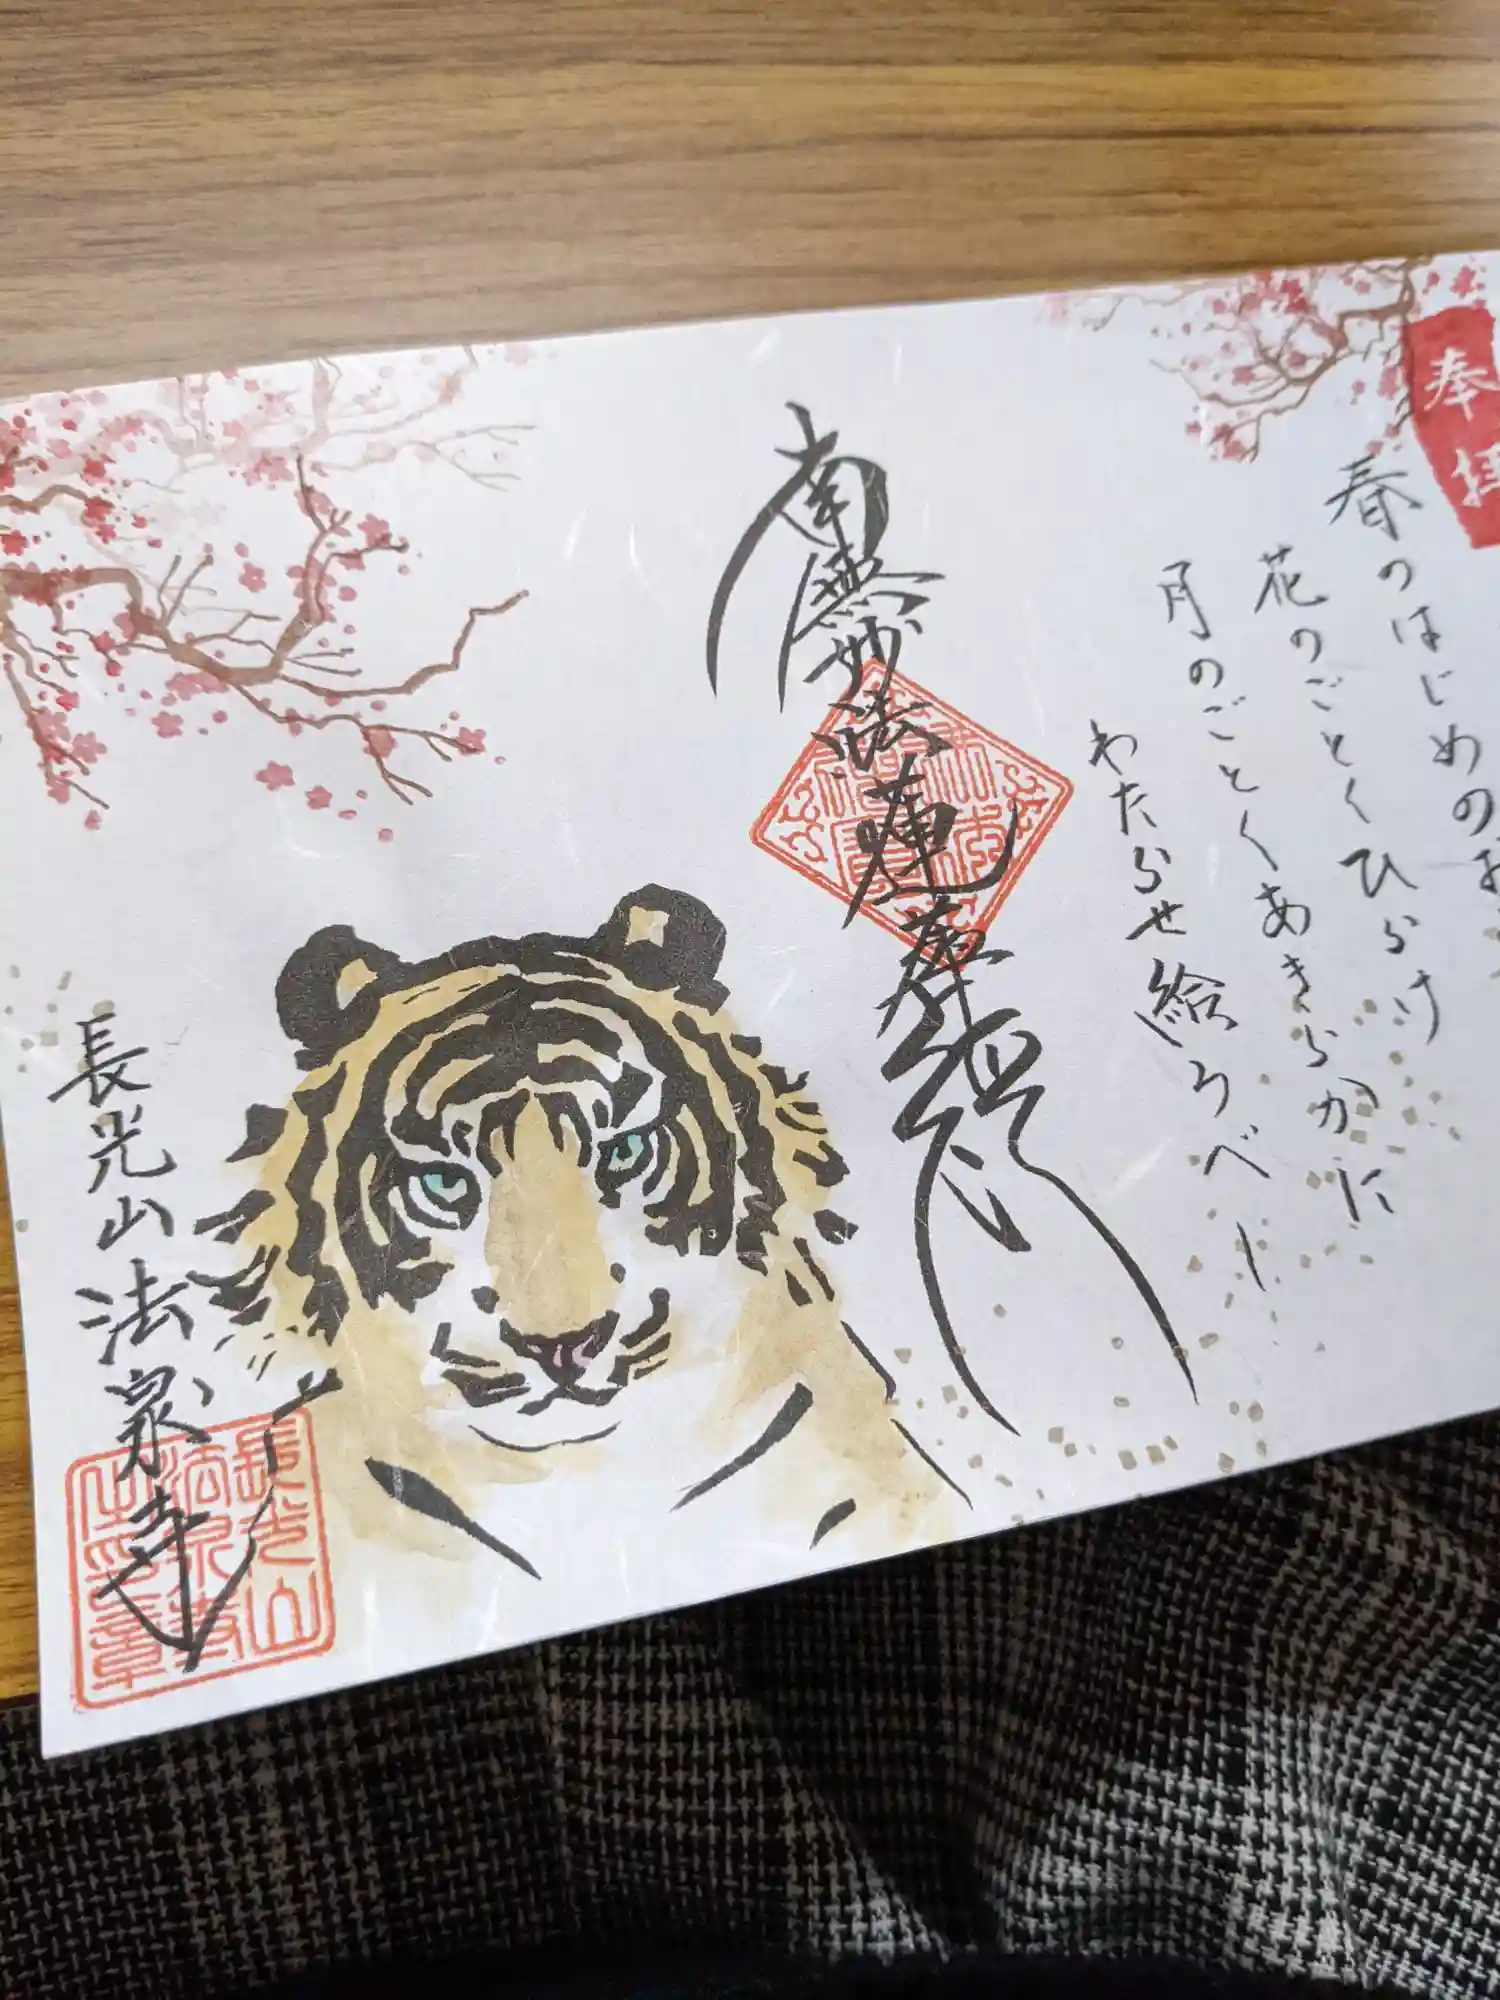 奉拝
春のはじめの
花のごとくひらけ
月のごとくあきらかに
わたらせ給うべし
南無妙法蓮華経
長光山法泉寺
長光山
法泉寺
之印章